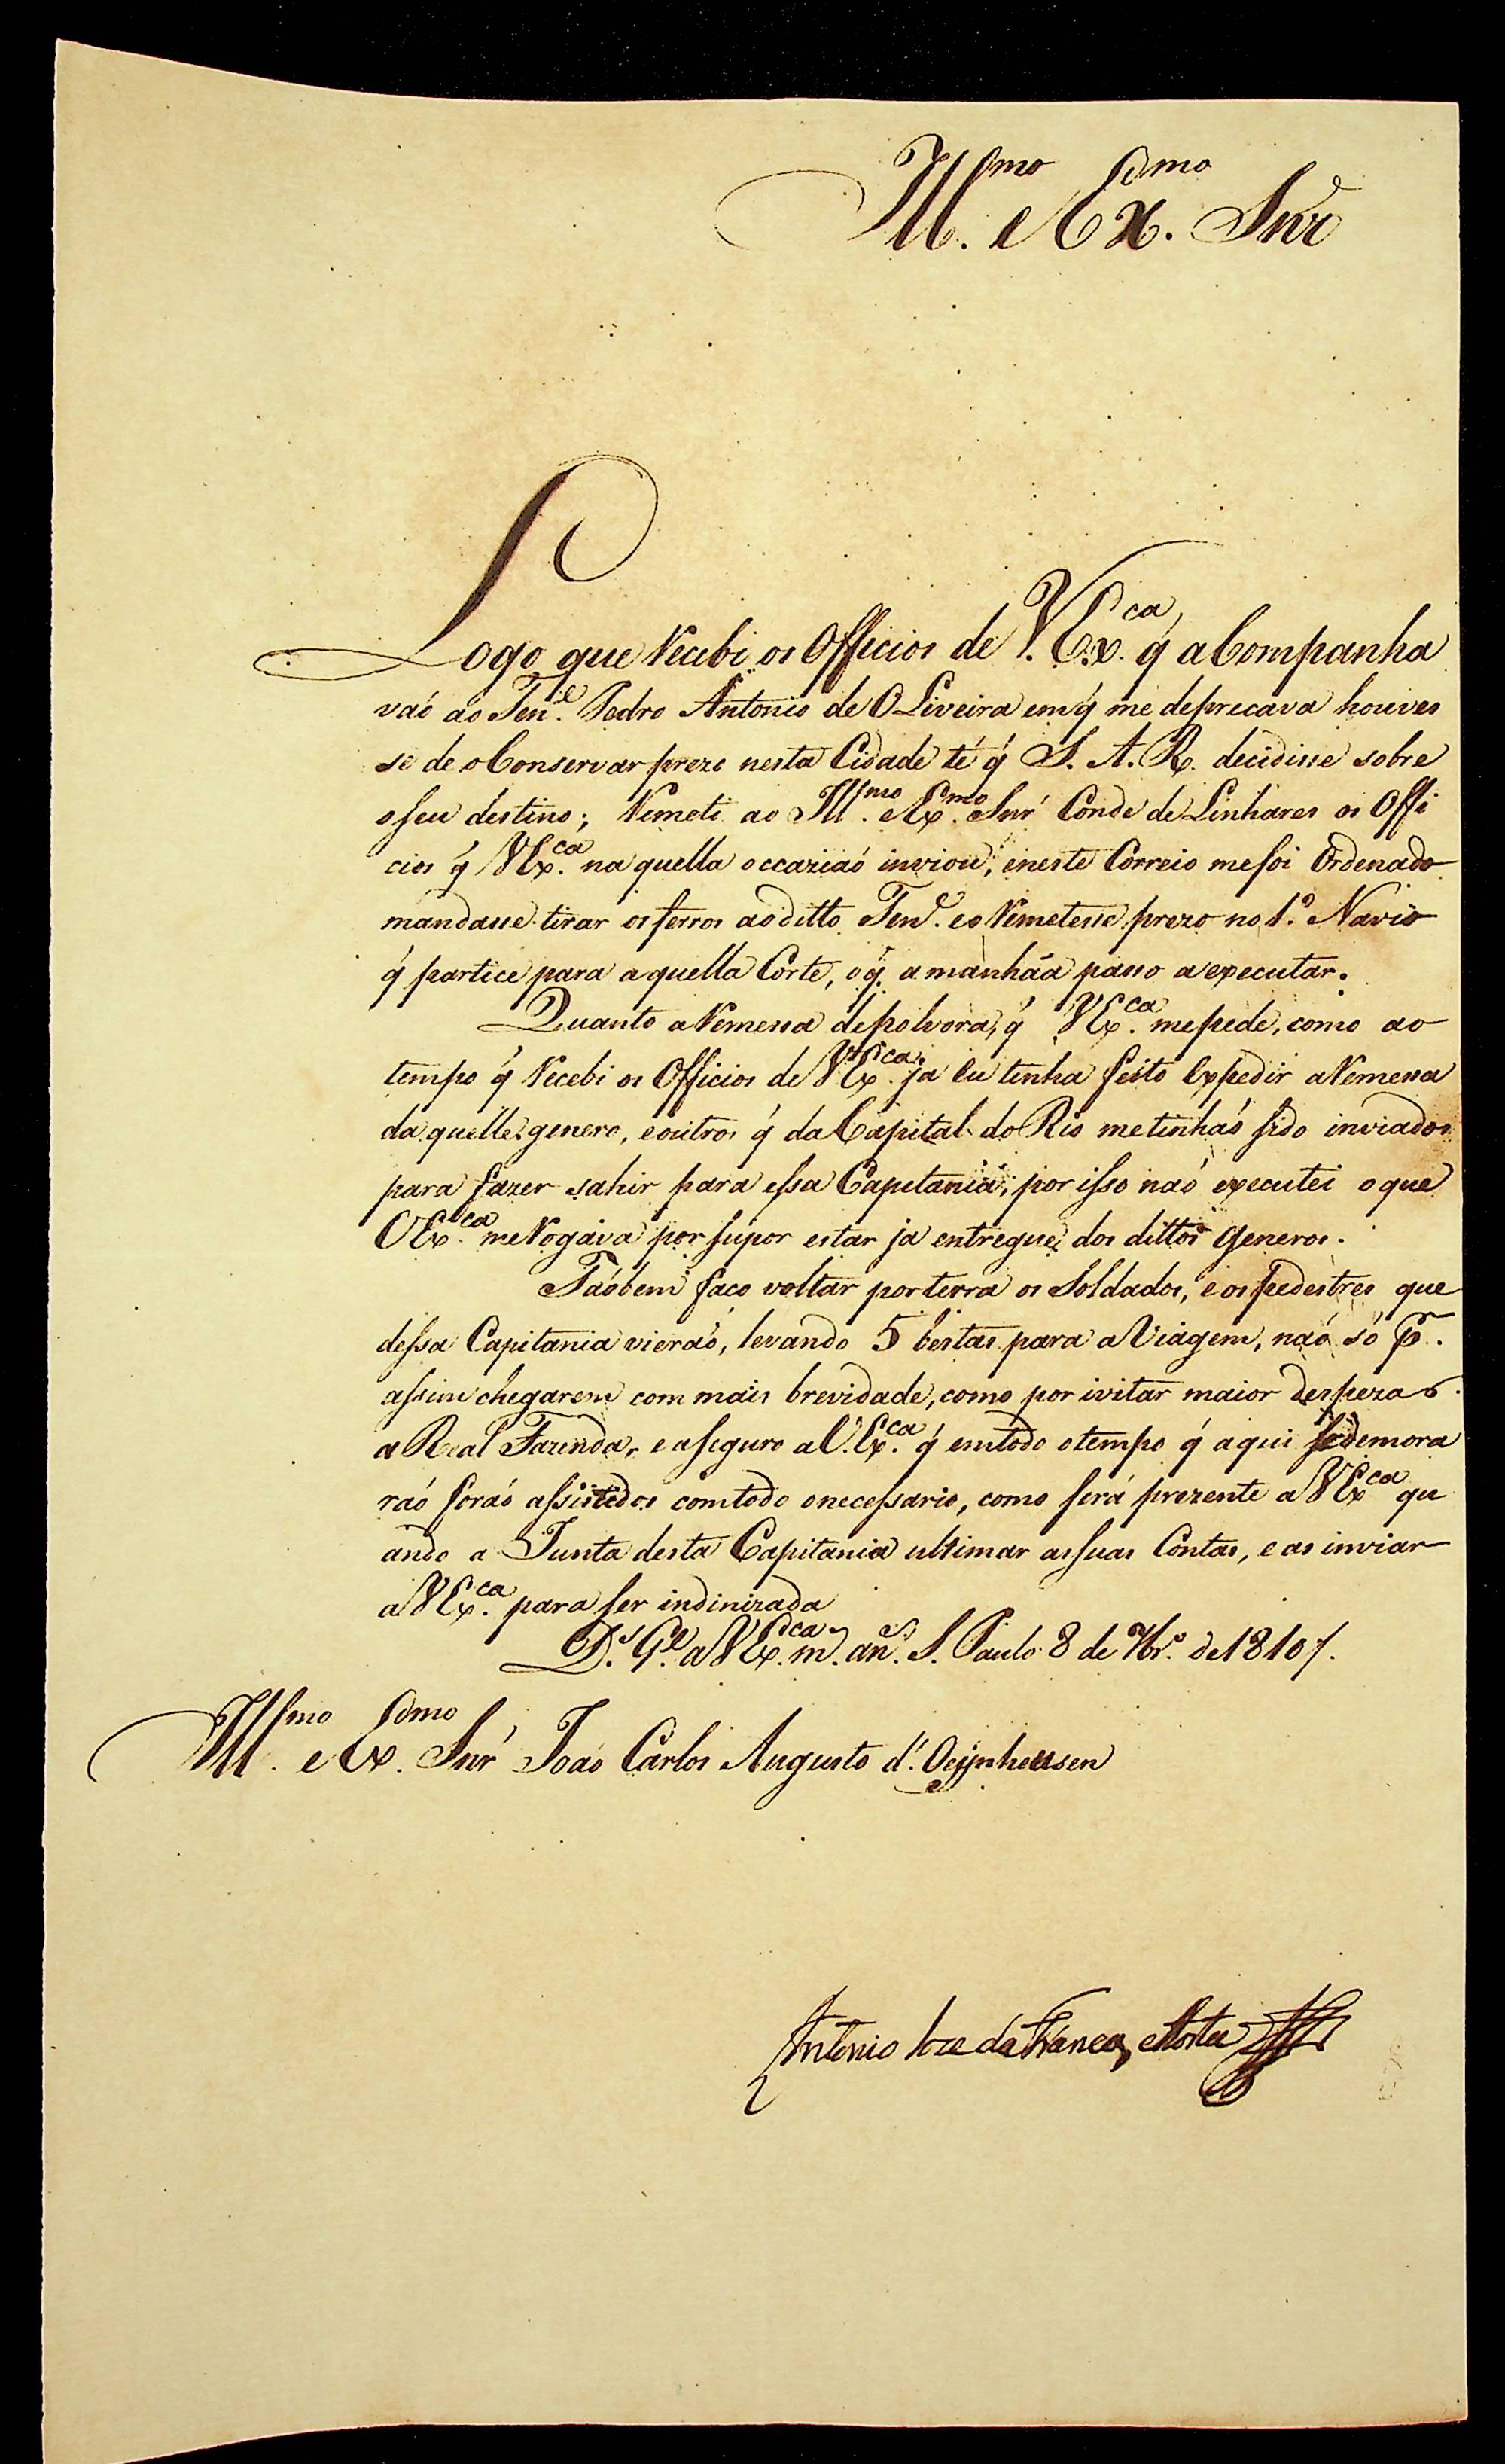 Ill.mo e Ex.mo Snr
Logo que Recebi os Officios de V. Ex.ca q́ aCompanha
vaó ao Ten.e Pedro Antonio de OLiveira em q́ me deprecava houves
se de oConservar prezo nesta Cidade té q́ S. A. R. decidisse sobre
oseu destino; Remeti ao Ill.mo eEx.mo Snŕ Conde de Linhares os Offi
cios q́ VEx.ca na quella occaziaó inviou; eneste Correio mefoi Ordenado
mandasse tirar os ferros aoditto Ten.e eo Remetesse prezo no 1.o Navio
q́ partice para aquella Corte, oq́ amanhãa passo a executar.
Quanto aRemessa depolvora, q́ VEx.ca mepede, como ao
tempo q́ Recebi os Officios de VEx.ca ja Eu tinha feito Expedir aRemessa
daquelle genero, eoutros q́ da Capital do Rio metinhaó sido inviados
para fazer sahir para essa Capetania; por isso naó executei oque
VEx.ca meRogava por supor estar ja entregue dos dittos Generos.
Taóbem faço voltar porterra os Soldados, e ospedestres que
dessa Capitania vieraó, levando 5 bestas para aViagem, naó só p.r
assim chegarem com mais brevidade, como por ivitar maior despeza
a Real Fazenda, e aseguro aV.Ex.ca q́ emtodo otempo q́ aqui sedemora
raó foraó assistidos comtodo onecessario, como será prezente aVEx.ca qu
ando a Junta desta Capitania ultimar assuas Contas, e as inviar
aVEx.ca para ser indinizada
D.s G.e aVEx.ca m.s an.s S. Paulo 8 de 7br.o de 1810
Ill.mo e Ex.mo Snŕ Joaó Carlos Augusto d'. Oeÿnheusen
Antonio Joze da Franca, eHorta